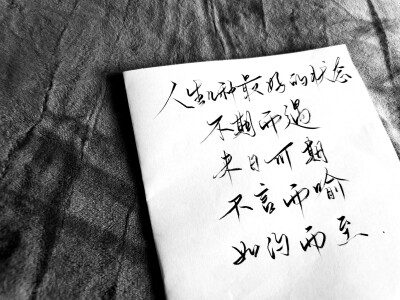 人生几种最好的状态
不期而遇
来日可期
不言而喻
如约而至.